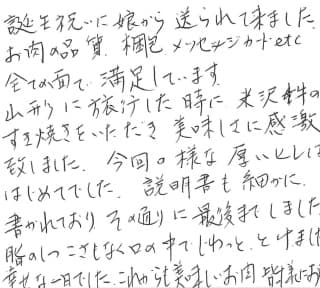 誕生祝いに娘から送られて来ました。
お肉の品質、梱包、メッセージカードetc
全ての面で満足しています。
山形に旅行した時に米沢牛の
すき焼きをいただき美味しさに感激
致しました。今回の様な厚いヒレは
はじめてでした。説明書も細かに
書かれておりその通りに最後までしました
脂のしつこさもなく口の中でじわっと、とけまし
幸せな一日でした。これからも美味しいお肉 皆様にお